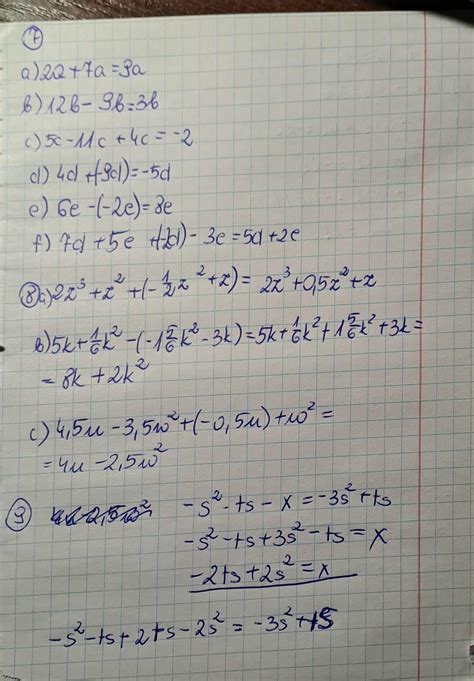 7
a) 2a + 7a = 9a
b) 12b - 9b = 3b
c) 5c - 11c + 4c = -2
d) 4d + (-9d) = -5d
e) 6e - (-2e) = 8e
f) 7d + 5e + (-2d) - 3e = 5d + 2e
8 a) 2x³ + x² + (-½x² + x) = 2x³ + 0,5x² + x
b) 5k + 1/6k² - (-1 5/6k² - 3k) = 5k + 1/6k² + 1 5/6k² + 3k =
= 8k + 2k²
c) 4,5u - 3,5w² + (-0,5u) + w² =
= 4u - 2,5w²
9 -s² - ts - x = -3s² + ts
-s² - ts + 3s² - ts = x
-2ts + 2s² = x
-s² - ts + 2ts - 2s² = -3s² + ts